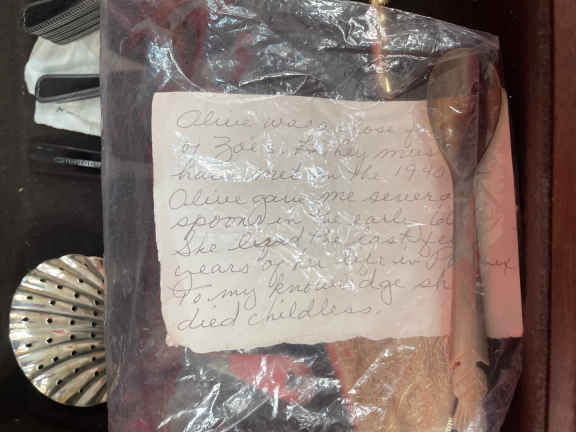 Olive was a close
of Zoe's. They mus
have met in the 1940
Olive gave me severa
spoons in the early
She lived the last few
years of her life in
To my knowledge sh
died childless.